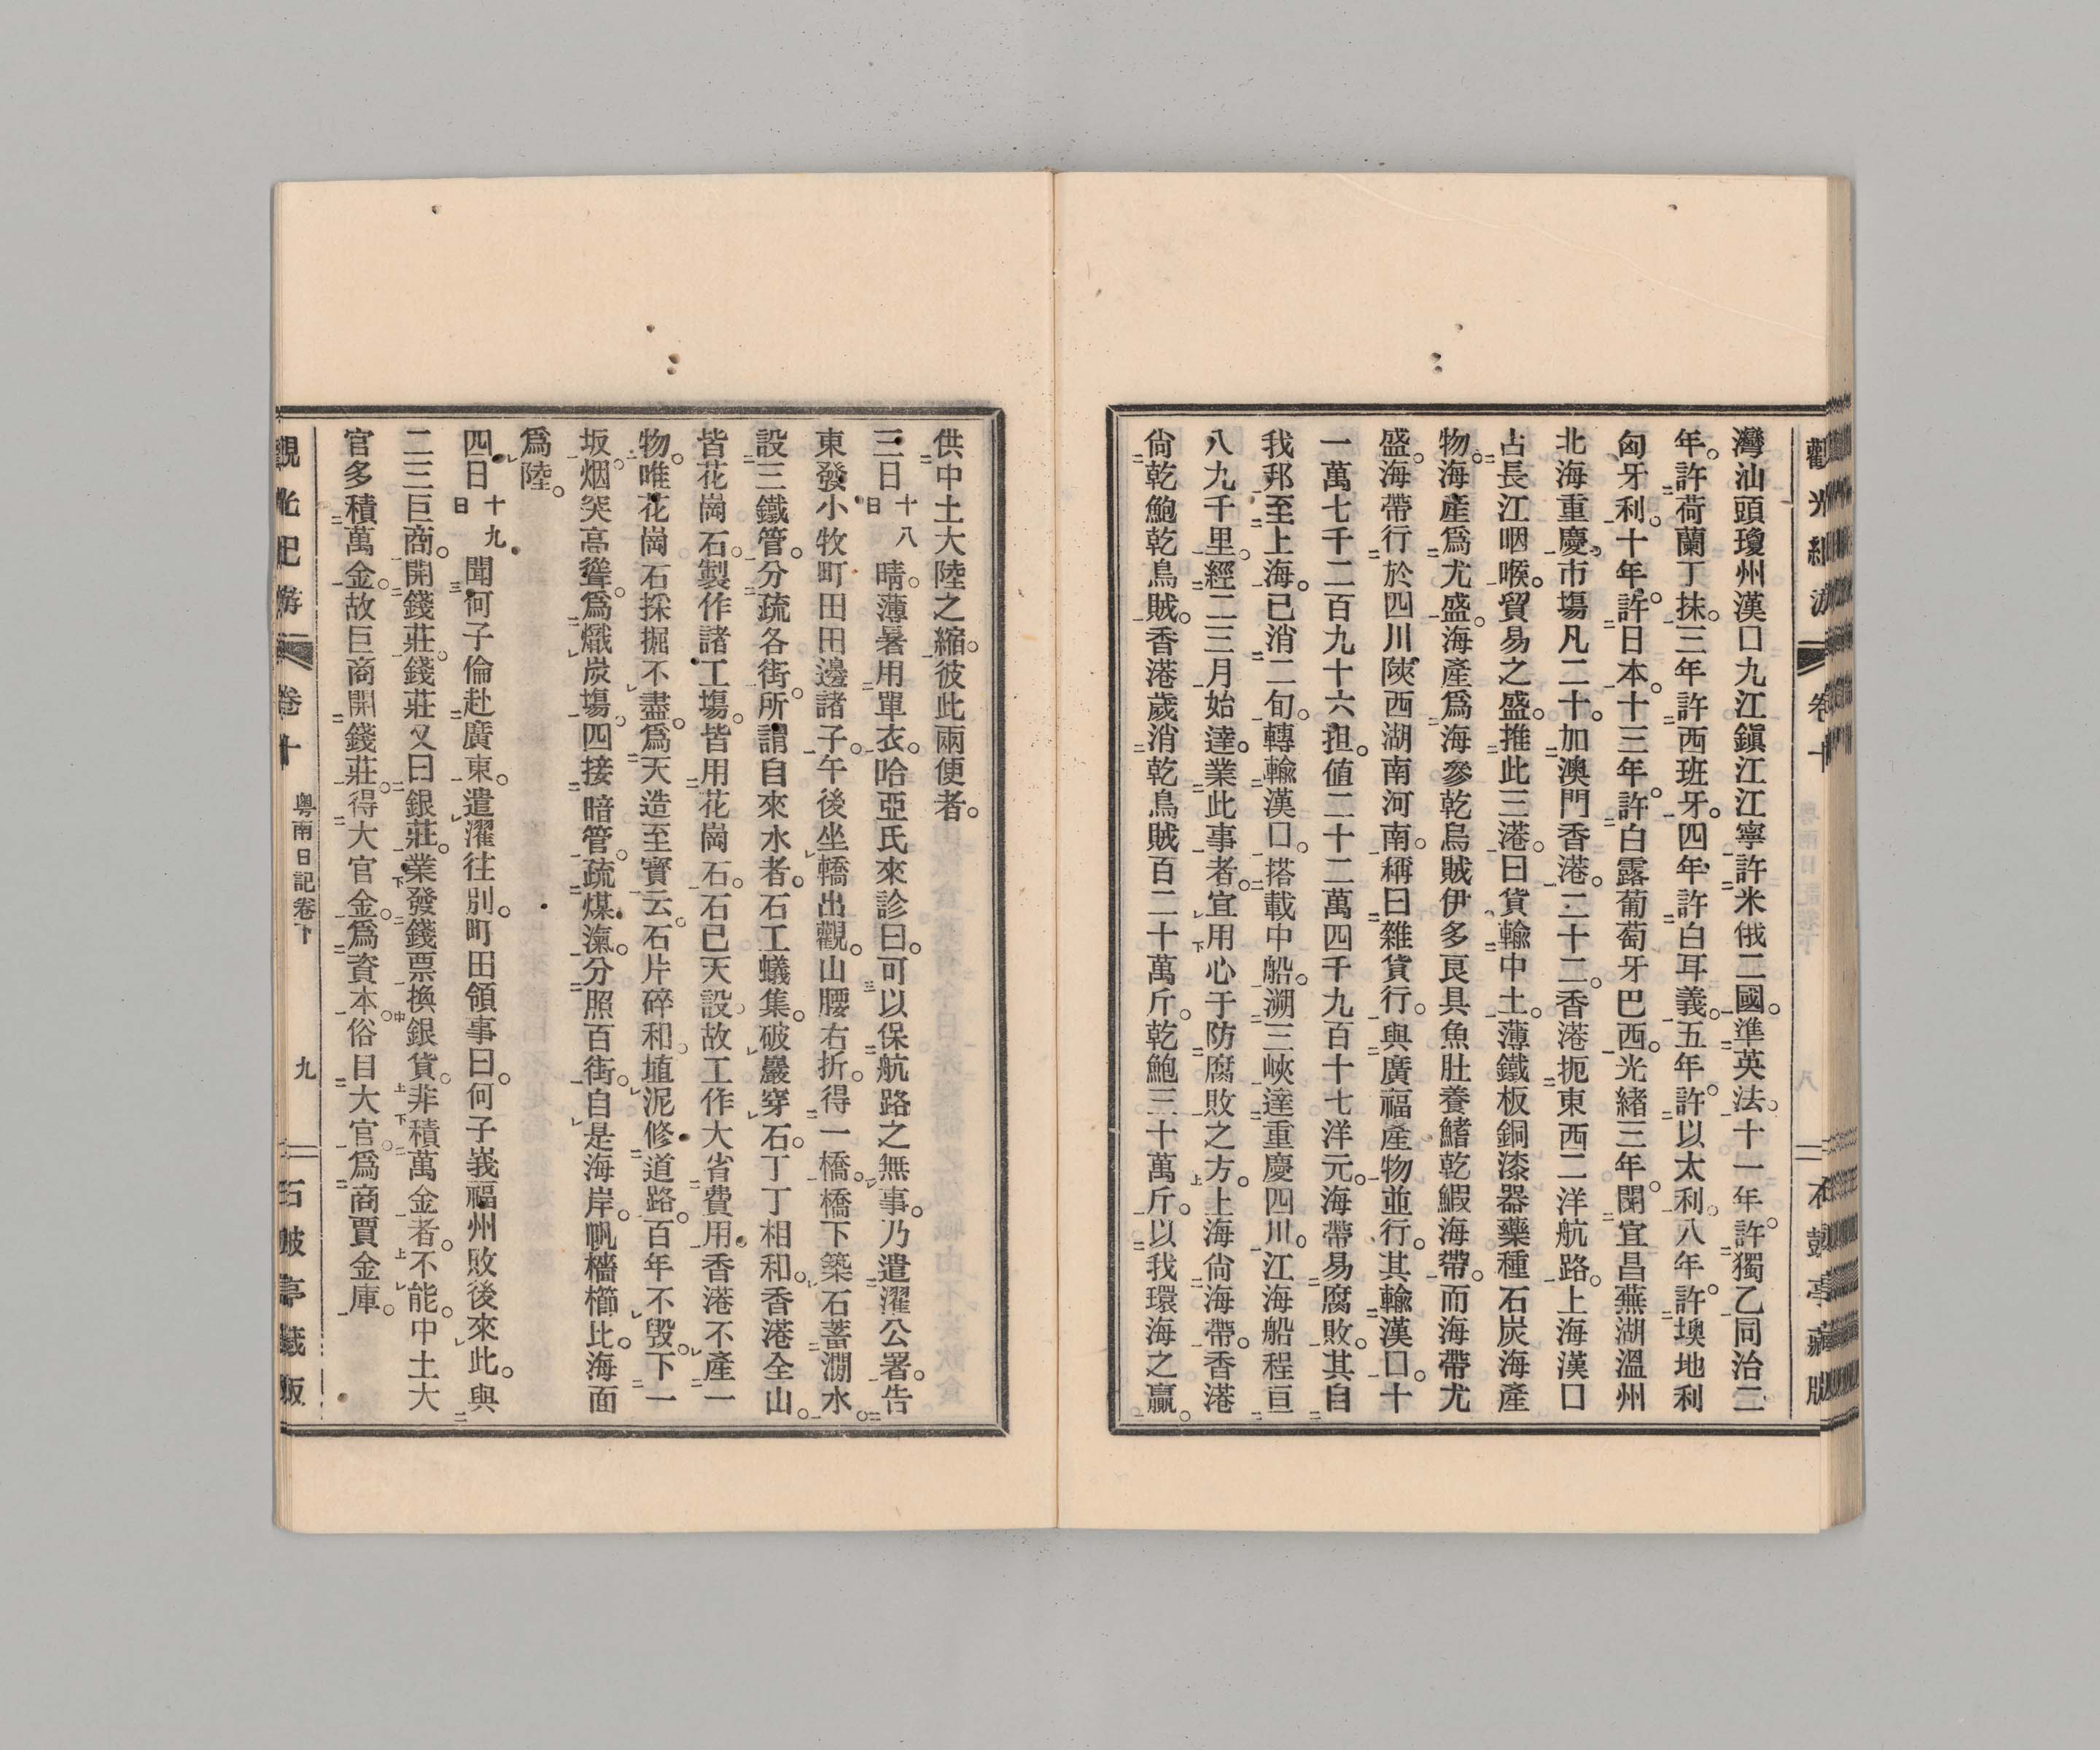 觀光紀游 卷十 石鼓亭藏版
灣汕頭瓊州漢口九江鎭江江寧許米俄二國。準英法。十一年。許獨乙同治二
年。許荷蘭丁抹。三年許西班牙。四年許白耳義。五年。許以太利。八年。許墺地利
匈牙利。十年。許日本。十三年。許白露葡萄牙巴西。光緒三年。開宜昌蕪湖溫州
北海重慶市場凡二十。加澳門香港。二十二。香港扼東西二洋航路。上海漢口
占長江咽喉。貿易之盛。推此三港。曰貨輸中土。薄鐵板銅漆器藥種石炭海產
物。海產爲尤盛。海產爲海參乾烏賊伊多貝具魚肚養鰭乾鰕海帶。而海帶尤
盛。海帶行於四川陝西湖南河南。稱曰雜貨行。與廣福產物並行。其輸漢口。十
一萬七千二百九十六担。値二十二萬四千九百十七洋元。海帶易腐敗。其自
我邦至上海。已消二旬。轉輸漢口。搭載中船。溯三峽達重慶四川。江海船程亘
八九千里。經二三月始達。業此事者。宜用心于防腐敗之方。上海尙海帶。香港
尙乾鮑乾烏賊。香港歲消乾烏賊百二十萬斤。乾鮑三十萬斤。以我環海之贏。
供中土大陸之縮。彼此兩便者。
三日十八日晴。薄暑用單衣。哈亞氏來診曰。可以保航路之無事。乃遣濯公署。告
東發小牧町田田邊諸子。午後坐轎出觀。山腰右折。得一橋。橋下築石蓄澗水。
設三鐵管。分疏各街。所謂自來水者。石工蟻集。破巖穿石。丁丁相和。香港全山。
皆花崗石。製作諸工場。皆用花崗石。石已天設。故工作大省費用。香港不產一
物。唯花崗石採掘不盡。爲天造至寶云。石片碎和埴泥修道路。百年不毀。下一
坂。烟突高聳。爲熾炭場。四接暗管。疏煤氣。分照百街。自是海岸。帆檣櫛比。海面
爲陸。
四日十九日聞何子倫赴廣東。遣濯往別。町田領事曰。何子峩福州敗後來此。與
二三巨商。開錢莊。錢莊又曰銀莊。業發錢票換銀貨。非積萬金者。不能。中土大
官多積萬金。故巨商開錢莊。得大官金。爲資本。俗目大官。爲商賈金庫。
觀光紀游 卷十 粤南日記卷下 九 石鼓亭藏版